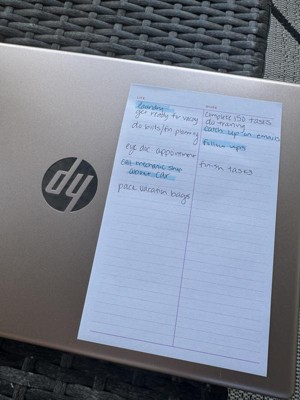 laundry
get ready for vacay
do bills/fin planning
eye dr. appointment
call mechanic shop
about car
pack vacation bags
complete 150 TASKS
do training
catch up on emails
follow ups
finish TASKS
hp